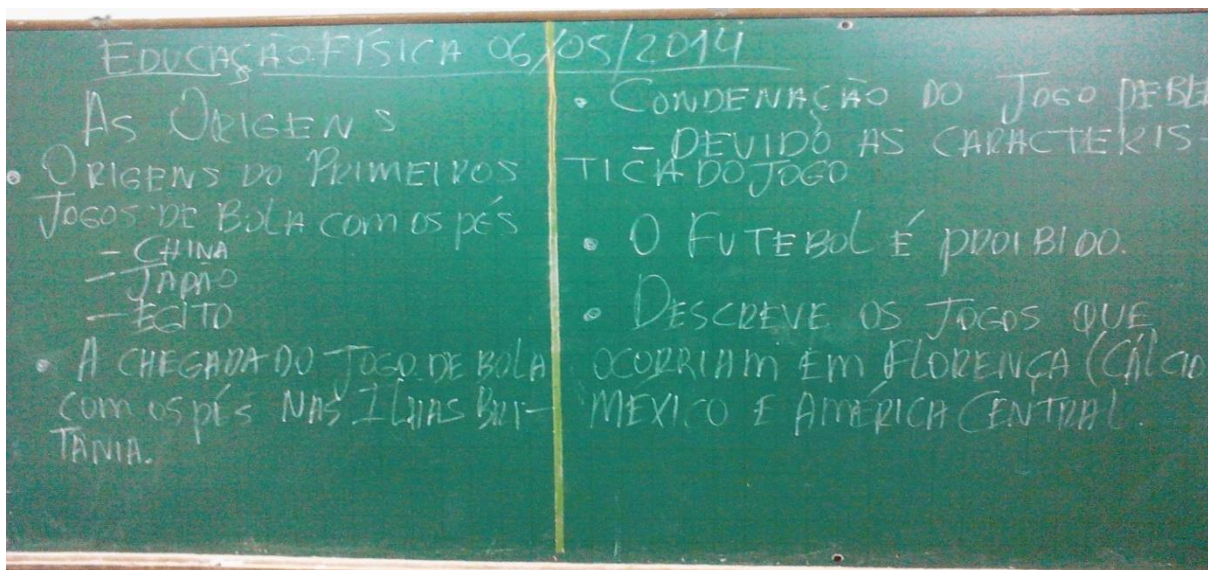 EDUCAÇÃO FÍSICA 06/05/2014
AS ORIGENS
• ORIGENS DO PRIMEIROS
JOGOS DE BOLA COM OS PÉS
- CHINA
- JAPÃO
- EGITO
• A CHEGADA DO JOGO DE BOLA
COM OS PÉS NAS ILHAS BRI-
TÂNIA.
• CONDENAÇÃO DO JOGO DE
- DEVIDO AS CARACTERIS-
TICA DO JOGO
• O FUTEBOL É PROIBIDO.
• DESCREVE OS JOGOS QUE
OCORRIAM EM FLORENÇA (CÁLCIO
MÉXICO E AMÉRICA CENTRAL.